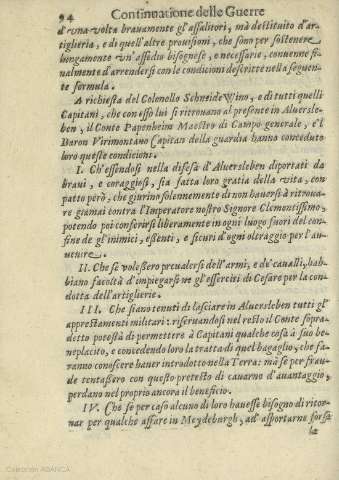 94 Continuatione delle Guerre
d'vna volta brauamente gl'assalitori, mà destituito d'ar-
tiglieria, e di quell'altre prouisioni, che sono per sostenere
lungamente vn'assedio bisognese, e necessarie, conuenne fi-
nalmente d'arrendersi con le conditioni descritte nella seguen-
te formula.
A richiesta del Colonello Schneide Wino, e di tutti quelli
Capitani, che con esso lui si ritrouano al presente in Aluersle-
ben, il Conte Papenheim Maestro di Campo generale, e'l
Baron Virimontano Capitan della guardia hanno conceduto
loro queste conditioni.
I. Ch'essendosi nella difesa d'Aluersleben diportati da
braui, e coraggiosi, sia fatta loro gratia della vita, con
patto però, che giurino solennemente di non hauersi à ritroua-
re giamai contra l'Imperatore nostro Signore Clementissimo,
potendo poi conferirsi liberamente in ogni luogo fuori del con-
fine de gl'inimici, essenti, e sicuri d'ogni oltraggio per l'au-
uenire.
II. Che se volessero preualersi dell'armi, e de' caualli, hab-
biano facoltà d'impiegarsi ne gl'esserciti di Cesare per la con-
dotta dell'artiglierie.
III. Che siano tenuti di lasciare in Aluersleben tutti gl'
apprestamenti militari: riseruandosi nel resto il Conte sopra-
detto potestà di permettere à Capitani qualche cosa à suo be-
neplacito, e concedendo loro la tratta di quel bagaglio, che fa-
ranno conoscere hauer introdotto nella Terra: mà se per frau-
de tentassero con questo pretesto di cauarne d'auantaggio,
perdano nel proprio ancora il beneficio.
IV. Che se per caso alcuno di loro hauesse bisogno di ritor-
nar per qualche affare in Meydeburgh, ad asportarne forsa
la
Colección ABANCA